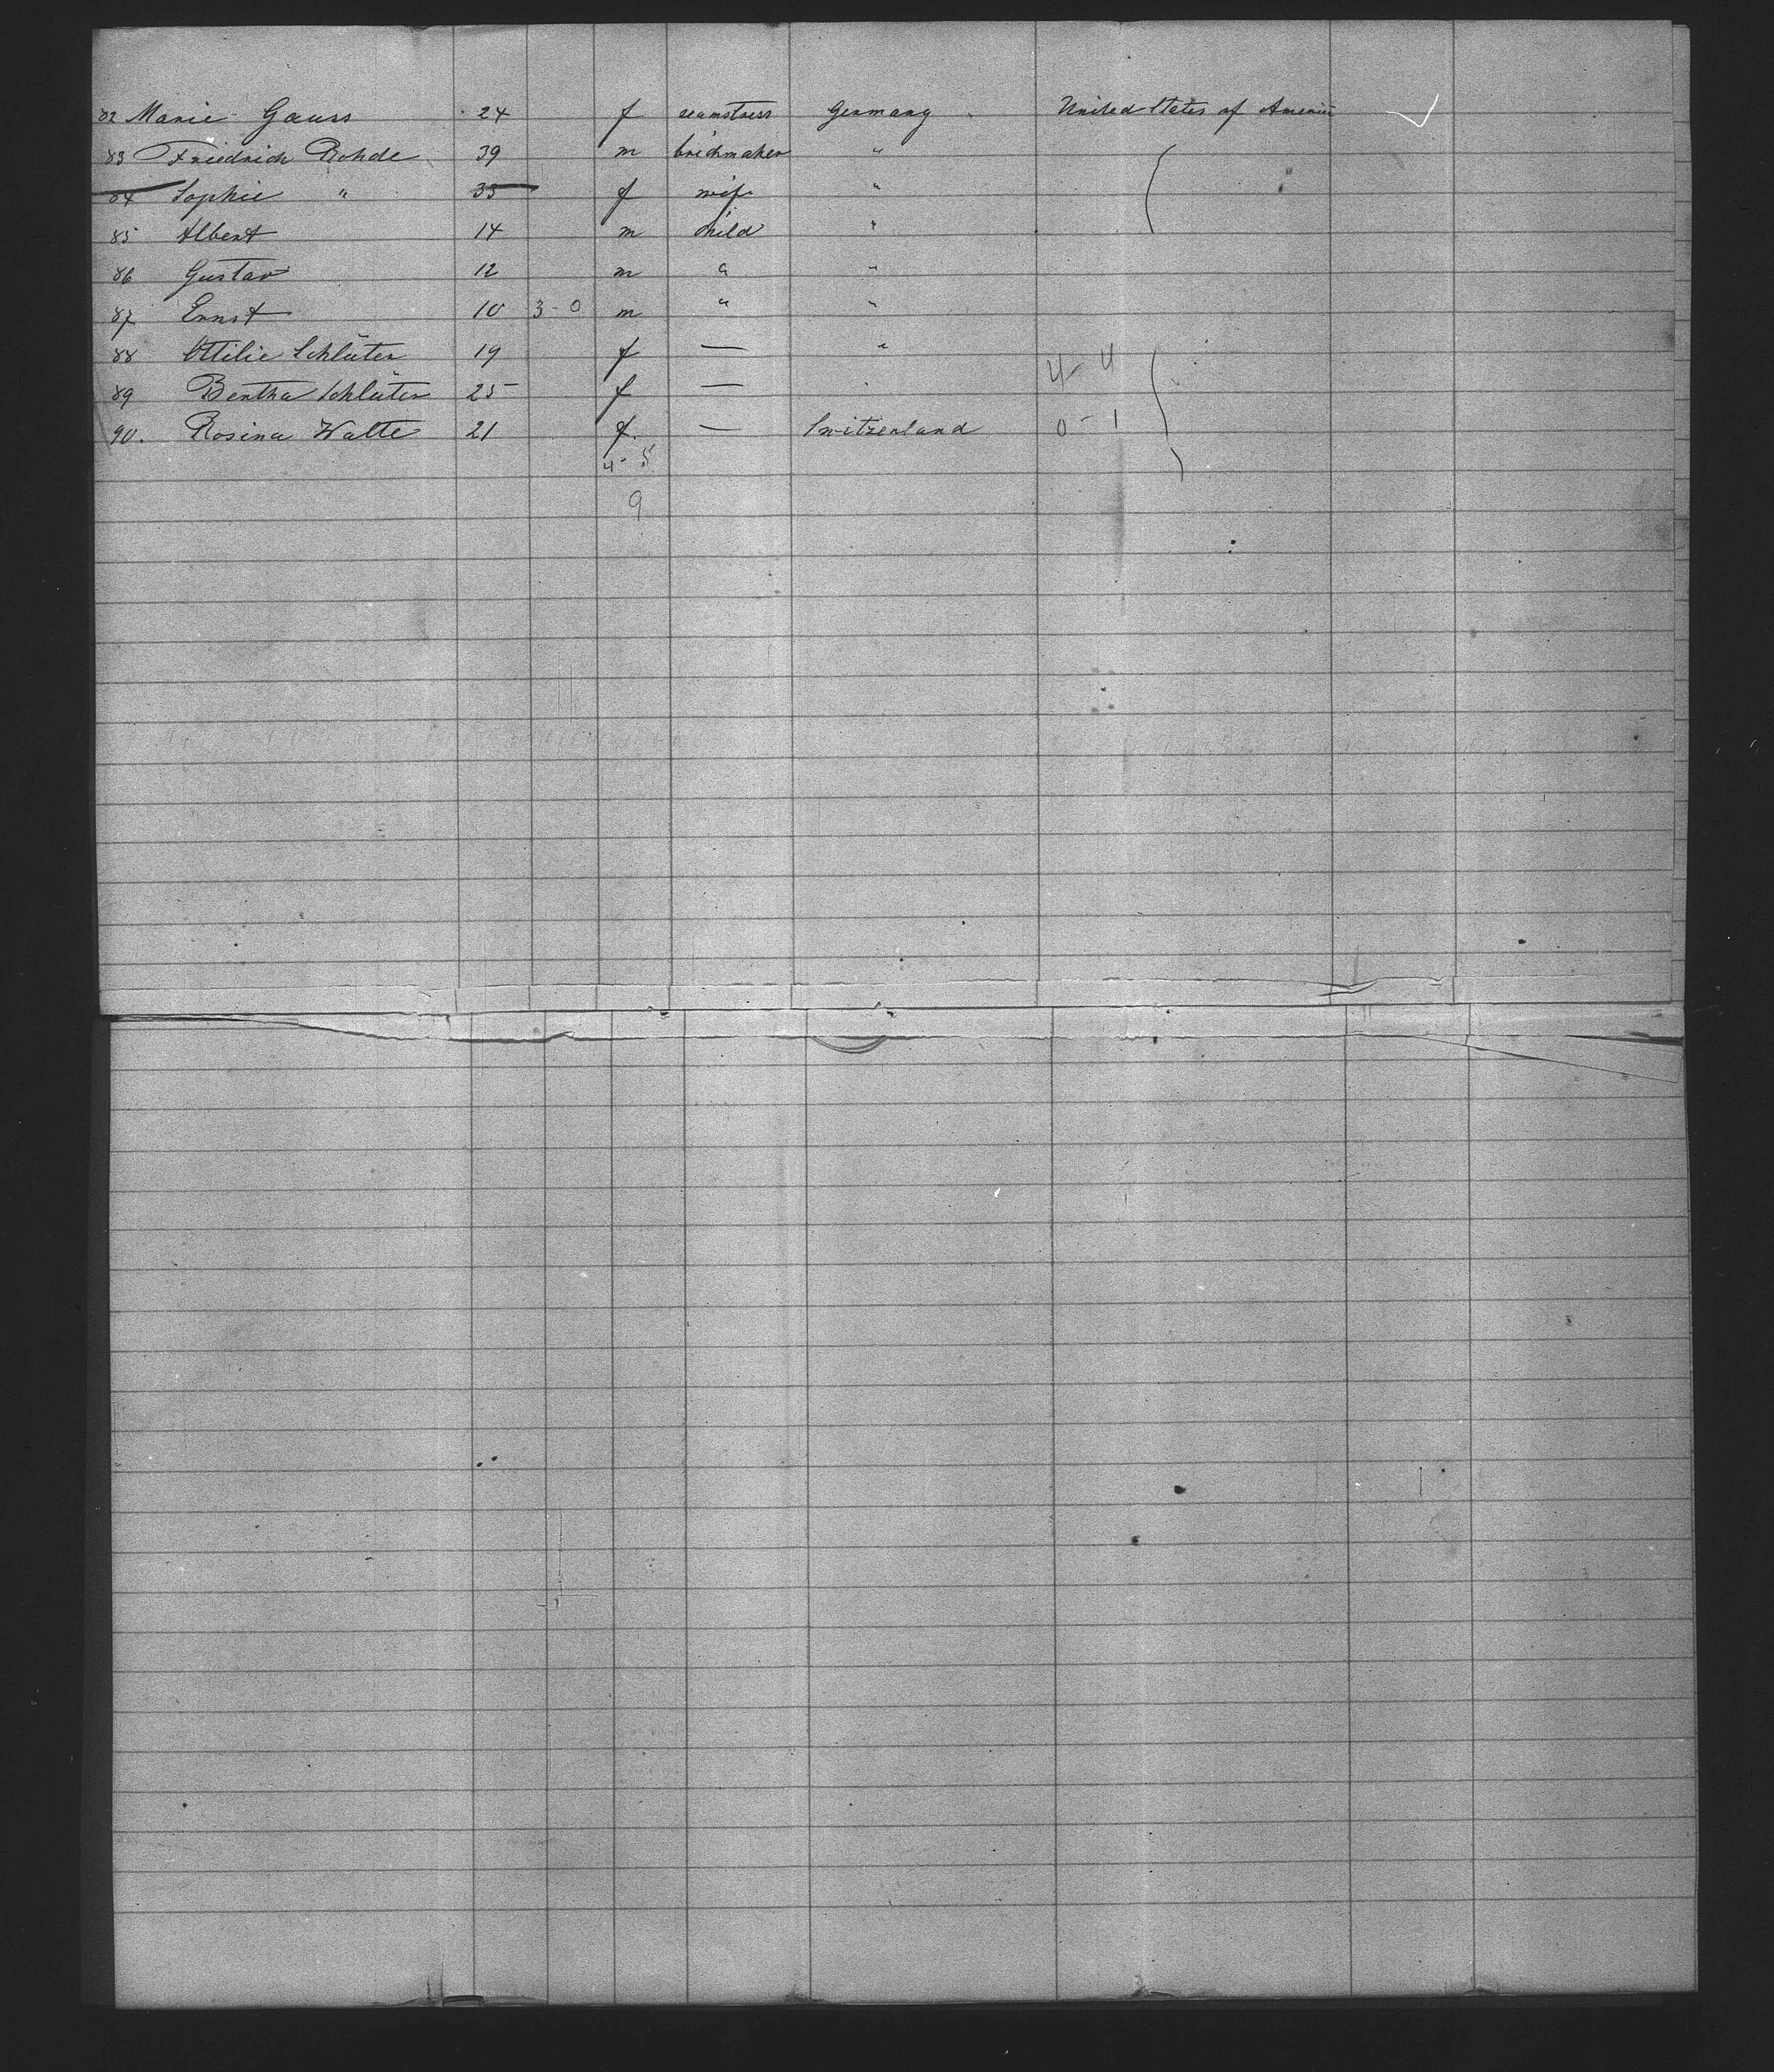 82 Marie Gauss 24 f seamstress Germany United States of America
83 Friedrich Rohde 39 m brickmaker "
84 Sophie " 35 f wife "
85 Albert 14 m child "
86 Gustav 12 m " "
87 Ernst 10 3-0 m " "
88 Ottilie Schlüter 19 f — " 4-4
89 Bertha Schlüter 25 f —
90. Rosina Walte 21 f. — Switzerland 0-1
4-5
9